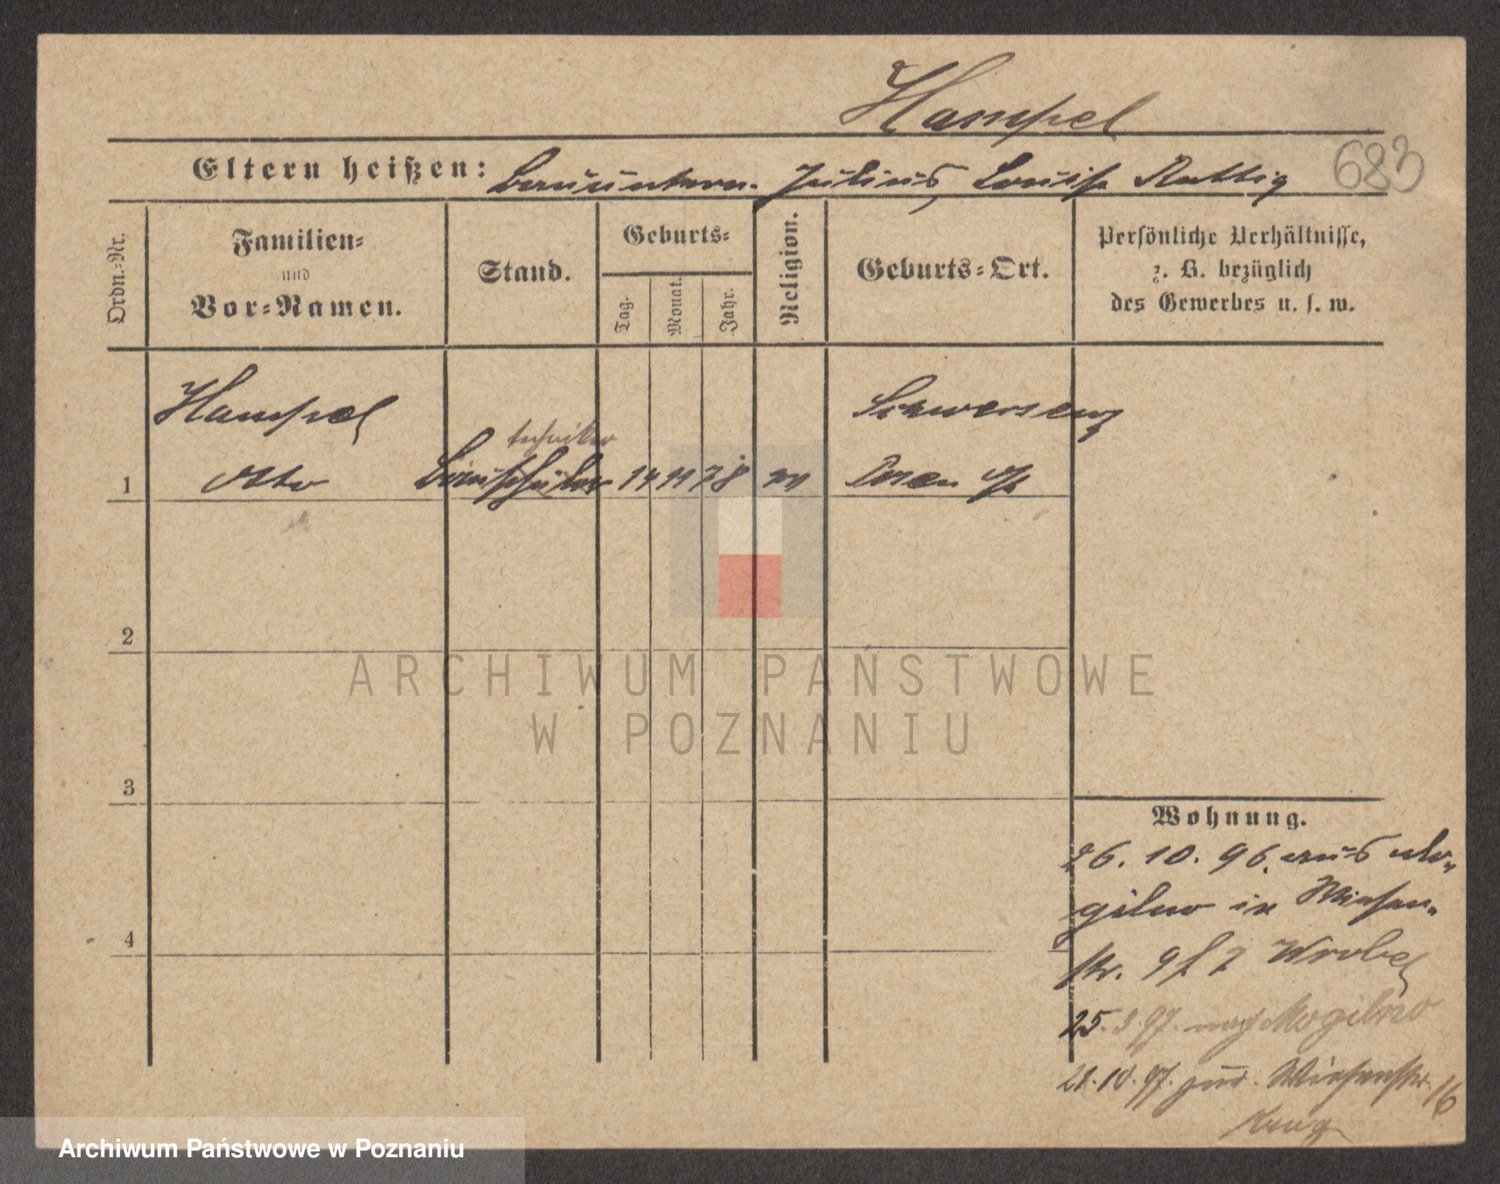 Hampel
683
Eltern heißen: Bauuntern. Julius, Louise Rattig
Ordn.=Nr.
Familien=
und
Vor=Namen.
Stand.
Geburts=
Tag.
Monat.
Jahr.
Religion.
Geburts=Ort.
Persönliche Verhältnisse,
z. B. bezüglich
des Gewerbes u. s. w.
Hampel
Schwersenz
techniker
1 Otto Bauschüler 14 11 78 Posen
2
ARCHIWUM PAŃSTWOWE
W POZNANIU
3
Wohnung.
26. 10. 96. aus Mo-
gilno in Wiesen-
str. 9 Wrobel
4
25. 3. 97. nach Mogilno
21. 10. 97. zur. Wiesenstr. 16
Krug
Archiwum Państwowe w Poznaniu